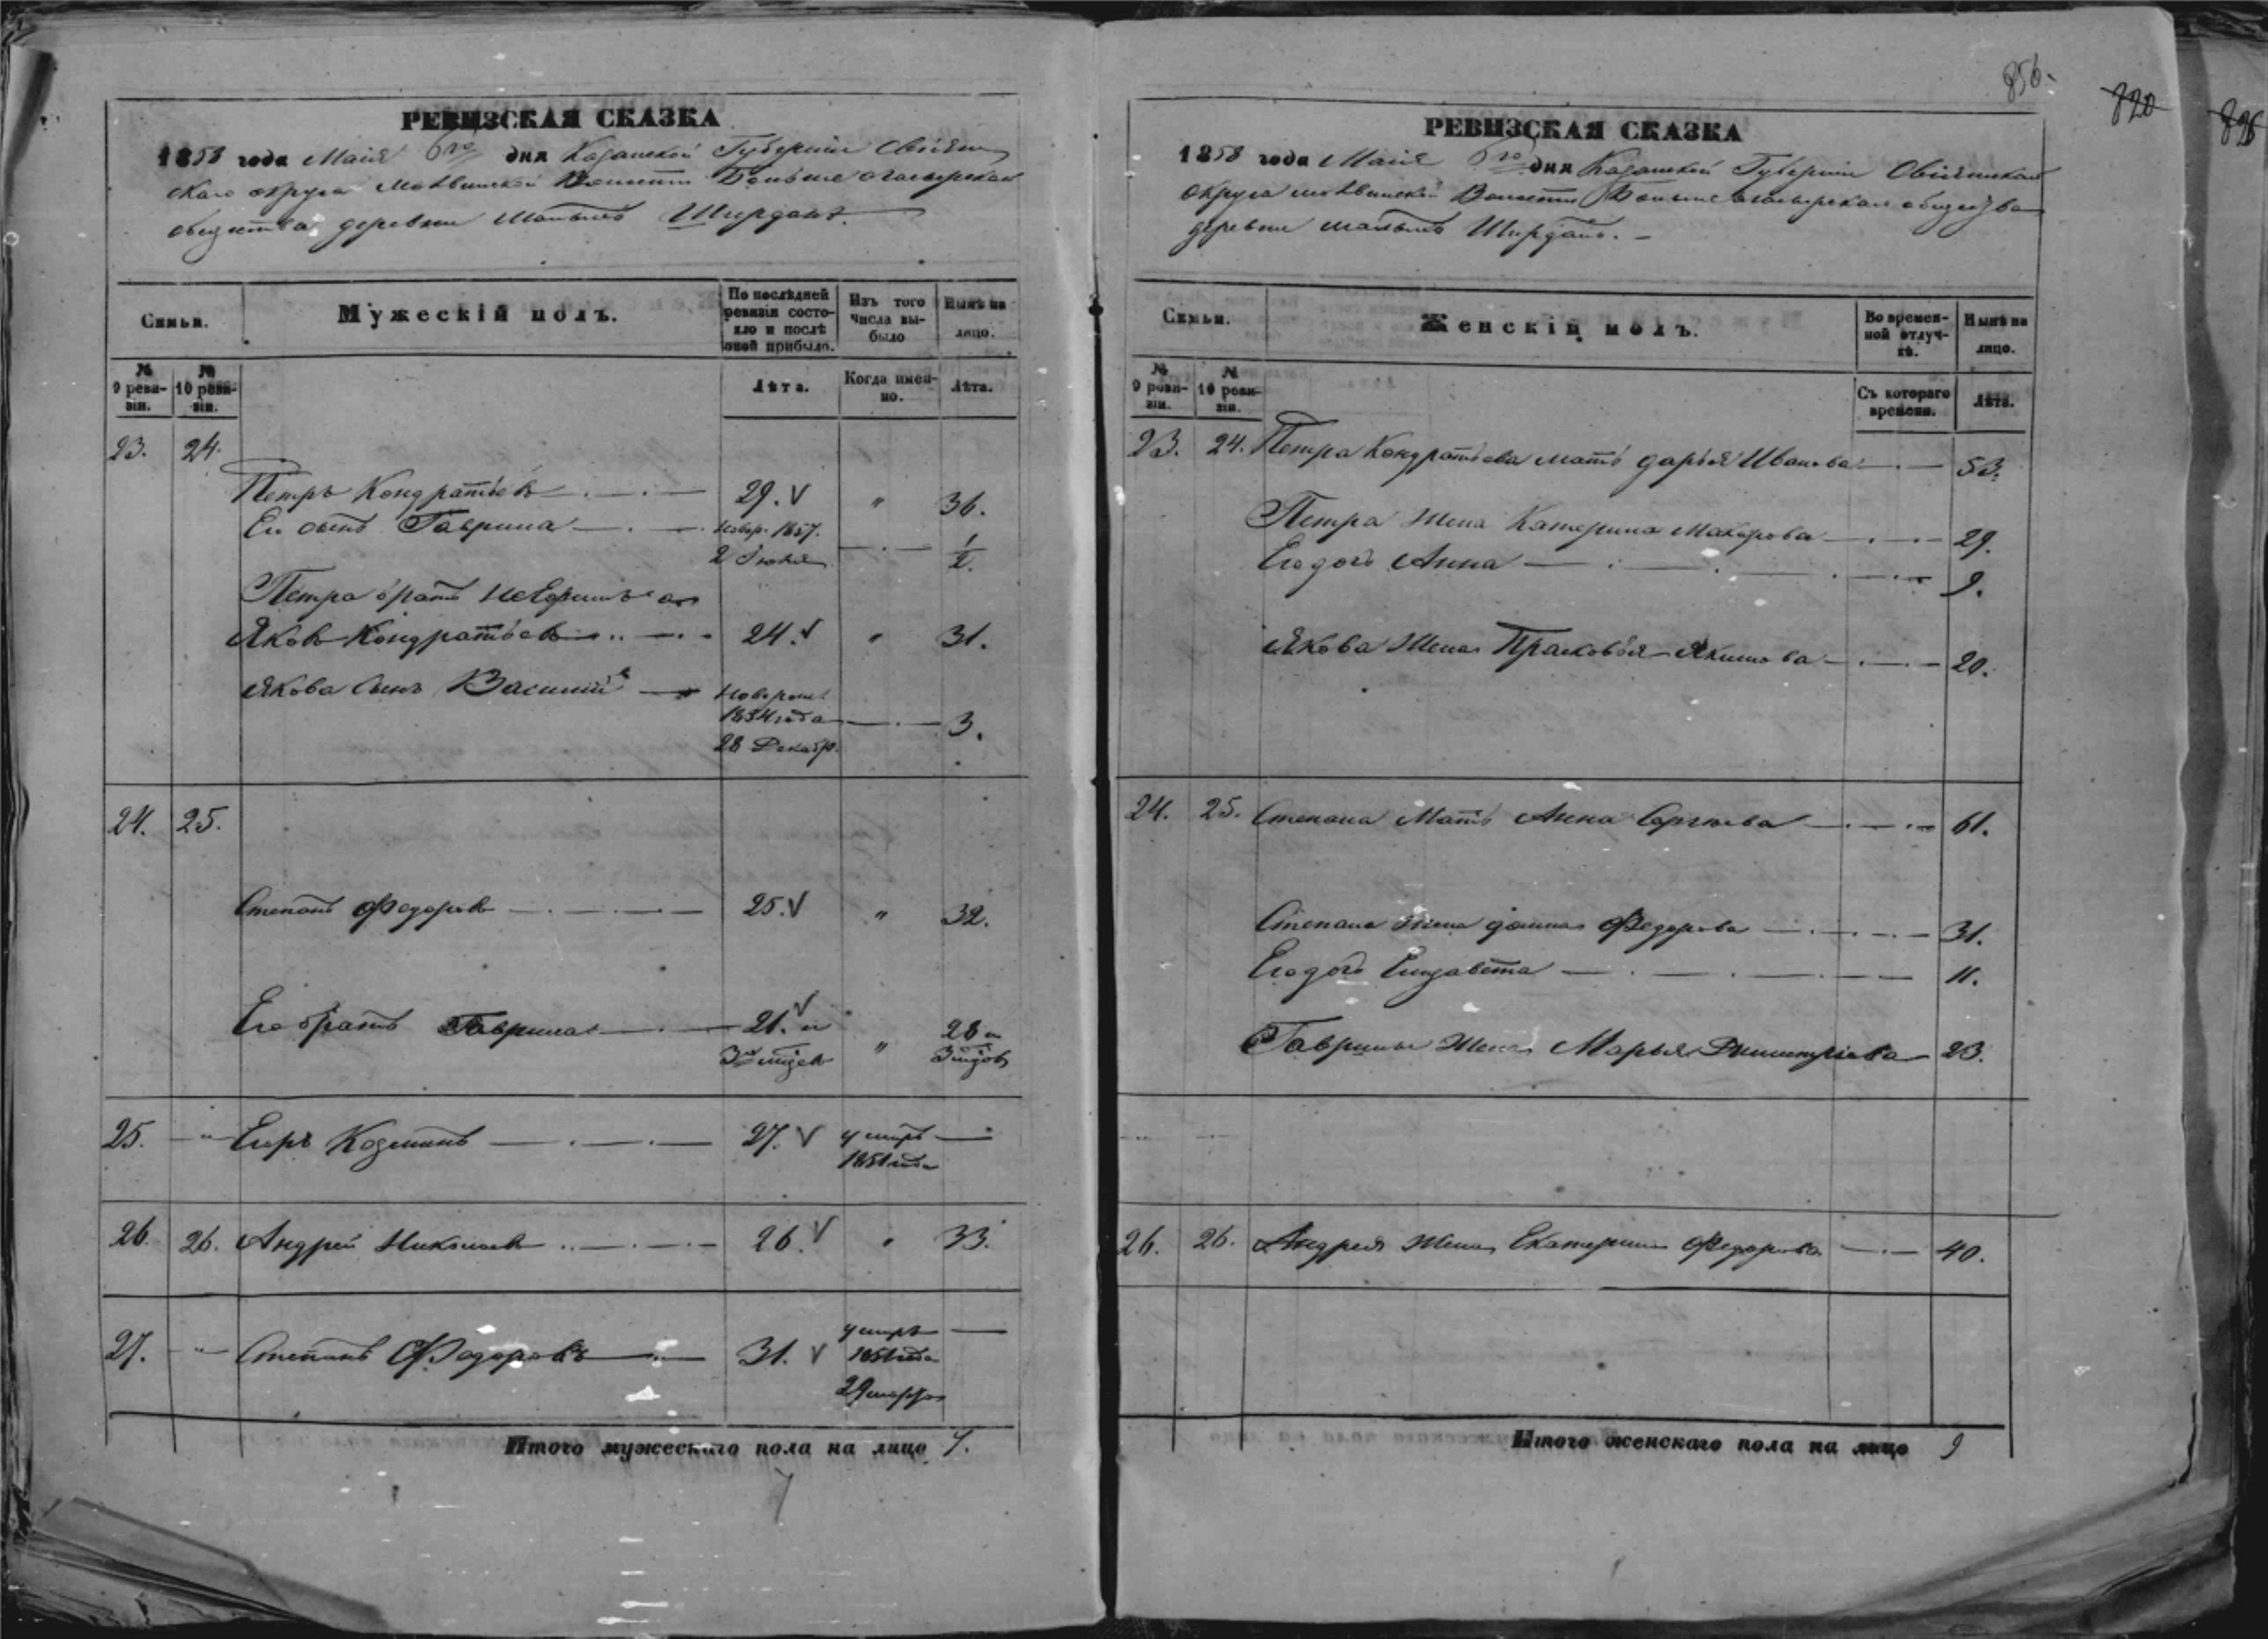 856.
820
826
РЕВИЗСКАЯ СКАЗКА
1858 года Маія 6го дня Казанской Губерніи Свіяж
скаго округа Волости Больше
общества деревни Малыхъ Ширданъ.
Семьи.
Мужескій полъ.
По послѣдней ревизіи состояло и послѣ оной прибыло.
Изъ того числа выбыло
Нынѣ на лицо.
№ 9 ревизіи.
№ 10 ревизіи.
Лѣта.
Когда именно.
Лѣта.
23. 24.
Петръ Кондратьевъ 29. V " 36.
Ег сынъ Гаврила новор. 1857. 2 Іюля 1/2.
Петра братъ
Яковъ Кондратьевъ 24. V " 31.
Якова сынъ Василій новорож
года 3.
28 Декабр.
24. 25.
Степанъ Федоровъ 25. V " 32.
Его братъ Гаврила 21. V и " 28 и
3 3
25. " Егоръ Козминъ 27. V умеръ —
1851 года
26. 26. Андрей Николаевъ 26. V " 33.
27. " Степанъ Федоровъ 31. V умеръ —
1851 года
29 марта
Итого мужескаго пола на лицо 7.
7
РЕВИЗСКАЯ СКАЗКА
1858 года Маія 6го дня Казанской Губерніи Свіяжскаго
округа Волости Больше общества
деревни малыхъ Ширданъ. —
Семьи.
Женскій полъ.
Во временной отлучкѣ.
Нынѣ на лицо.
№ 9 ревизіи.
№ 10 ревизіи.
Съ котораго времени.
Лѣта.
23. 24. Петра Кондратьева мать дарья Иванова 53.
Петра жена Катерина Макарова 29.
Его дочь Анна 9.
Якова жена Прасковья Якимова 20.
24. 25. Степана Мать Анна Сергѣева 61.
Степана жена домна Федорова 31.
Его дочь Елизавета 11.
Гаврилы жена Марья Дмитріева 23.
26. 26. Андрея жена Екатерина Федорова 40.
Итого женскаго пола на лицо 9